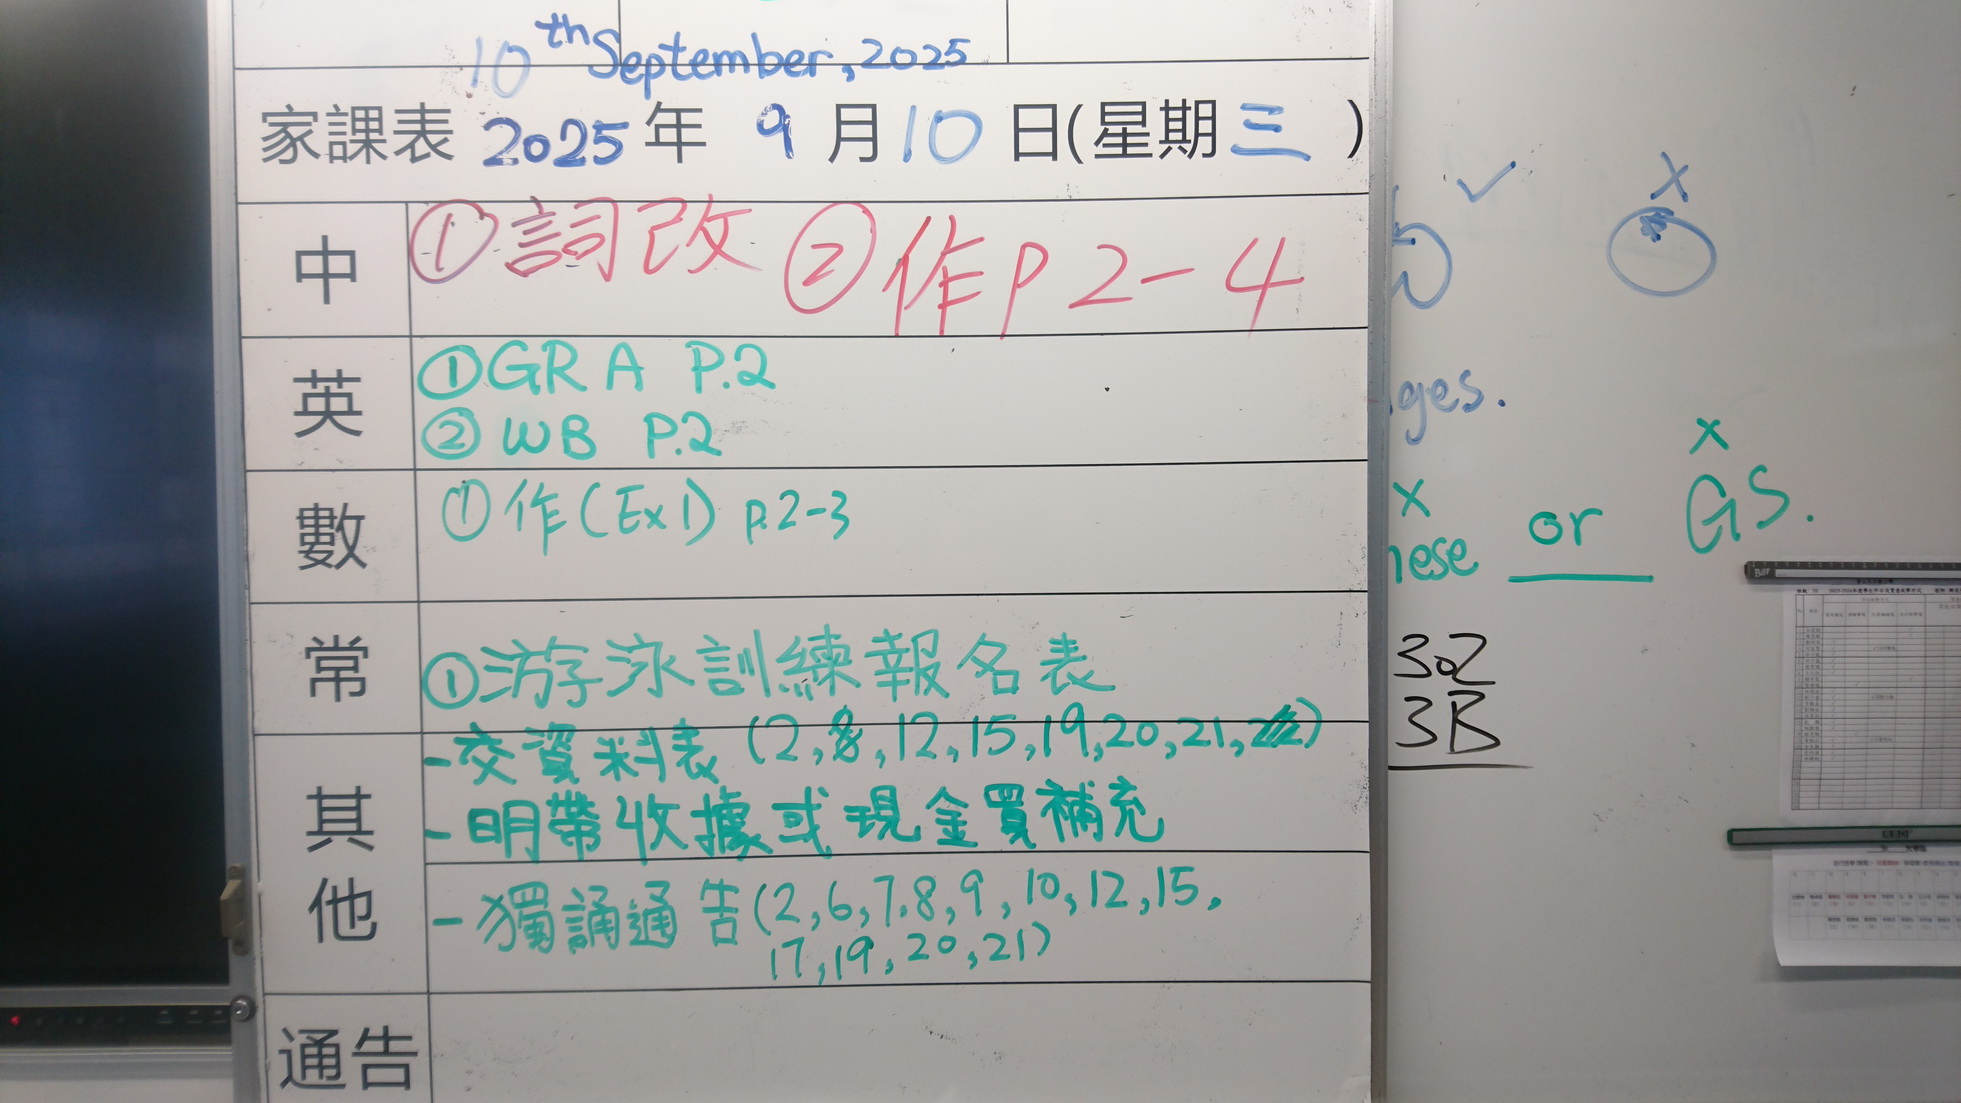 10th September, 2025
家課表 2025 年 9 月 10 日(星期三)
中 ①詞改 ②作P2-4
英 ①GR A P.2
②WB P.2
數 ①作(Ex1) p.2-3
常 ①游泳訓練報名表
其他
-交資料表(2,8,12,15,19,20,21,
-明帶收據或現金買補充
-獨誦通告(2,6,7,8,9,10,12,15,
17,19,20,21)
通告
ges.
x
x
nese or GS.
302
3B